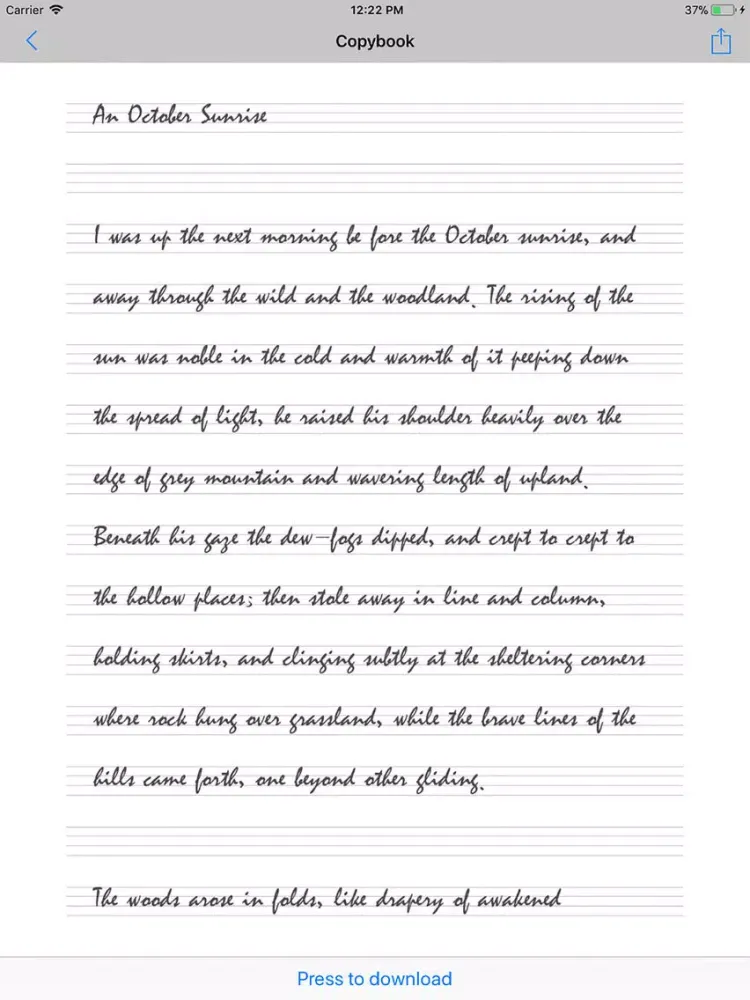 Carrier 12:22 PM 37%
Copybook
An October Sunrise
I was up the next morning be fore the October sunrise, and
away through the wild and the woodland. The rising of the
sun was noble in the cold and warmth of it peeping down
the spread of light, he raised his shoulder heavily over the
edge of grey mountain and wavering length of upland.
Beneath his gaze the dew-fogs dipped, and crept to crept to
the hollow places; then stole away in line and column,
holding skirts, and clinging subtly at the sheltering corners
where rock hung over grassland, while the brave lines of the
hills came forth, one beyond other gliding.
The woods arose in folds, like drapery of awakened
Press to download